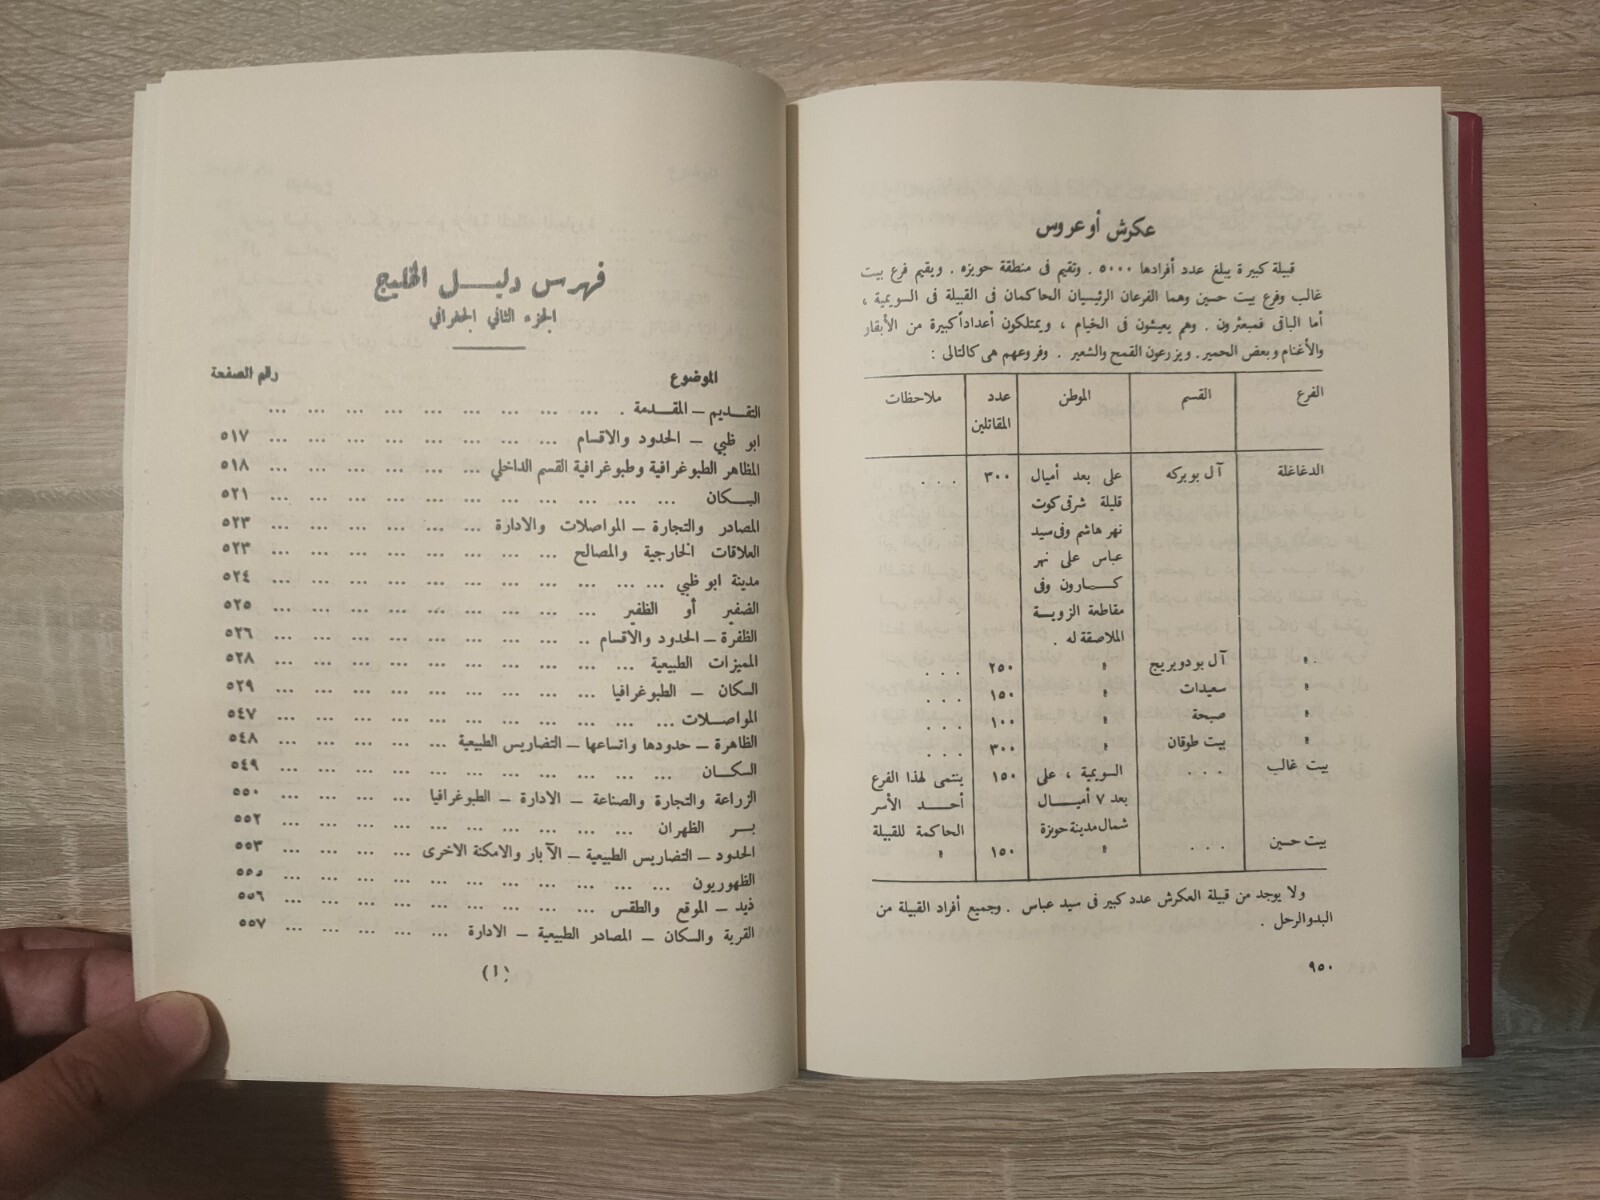 عكرش أو عروس
قبيلة كبيرة يبلغ عدد أفرادها ٥٠٠٠ . وتقيم فى منطقة حويزه . ويقيم فرع بيت
غالب وفرع بيت حسين وهما الفرعان الرئيسيان الحاكمان فى القبيلة فى السويمية ،
أما الباقى فمبعثرون . وهم يعيشون فى الخيام ، ويمتلكون أعداداً كبيرة من الأبقار
والأغنام وبعض الحمير. ويزرعون القمح والشعير . وفروعهم هى كالتالى :
الفرع القسم الموطن عدد المقاتلين ملاحظات
الدغاغلة آل بوبركه على بعد أميال ٣٠٠ . . .
قليلة شرقى كوت
نهر هاشم وفى سيد
عباس على نهر
كارون وفى
مقاطعة الزوية
الملاصقة له .
" آل بودويريج " ٢٥٠ . . .
" سعيدات " ١٥٠ . . .
" صبحة " ١٠٠ . . .
" بيت طوقان " ٣٠٠ . . .
بيت غالب . . . السويمية ، على ١٥٠ ينتمى لهذا الفرع
بعد ٧ أميال أحد الأسر
شمال مدينة حويزة الحاكمة للقبيلة
بيت حسين . . . " ١٥٠ "
ولا يوجد من قبيلة العكرش عدد كبير فى سيد عباس . وجميع أفراد القبيلة من
البدو الرحل .
٩٥٠
فهرس دليل الخليج
الجزء الثاني الجغرافي
الموضوع رقم الصفحة
التقديم – المقدمة . ... ... ... ... ... ... ... ... ...
ابو ظبي – الحدود والاقسام ... ... ... ... ... ... ... ... ٥١٧
المظاهر الطبوغرافية وطبوغرافية القسم الداخلي ... ... ... ... ... ... ٥١٨
السكان ... ... ... ... ... ... ... ... ... ... ... ٥٢١
المصادر والتجارة – المواصلات والادارة ... ... ... ... ... ... ٥٢٣
العلاقات الخارجية والمصالح ... ... ... ... ... ... ... ... ٥٢٣
مدينة ابو ظبي ... ... ... ... ... ... ... ... ... ... ... ٥٢٤
الضفير أو الظفير ... ... ... ... ... ... ... ... ... ٥٢٥
الظفرة – الحدود والاقسام .. ... ... ... ... ... ... ... ... ٥٢٦
المميزات الطبيعية ... ... ... ... ... ... ... ... ... ... ٥٢٨
السكان – الطبوغرافيا ... ... ... ... ... ... ... ... ... ٥٢٩
المواصلات ... ... ... ... ... ... ... ... ... ... ... ٥٤٧
الظاهرة – حدودها واتساعها – التضاريس الطبيعية ... ... ... ... ... ٥٤٨
السكان ... ... ... ... ... ... ... ... ... ... ... ٥٤٩
الزراعة والتجارة والصناعة – الادارة – الطبوغرافيا ... ... ... ... ٥٥٠
بر الظهران ... ... ... ... ... ... ... ... ... ... ٥٥٢
الحدود – التضاريس الطبيعية – الآبار والامكنة الاخرى ... ... ... ... ٥٥٣
الظهوريون ... ... ... ... ... ... ... ... ... ... ... ٥٥٥
ذيد – الموقع والطقس ... ... ... ... ... ... ... ... ... ٥٥٦
القرية والسكان – المصادر الطبيعية – الادارة ... ... ... ... ... ٥٥٧
(١)